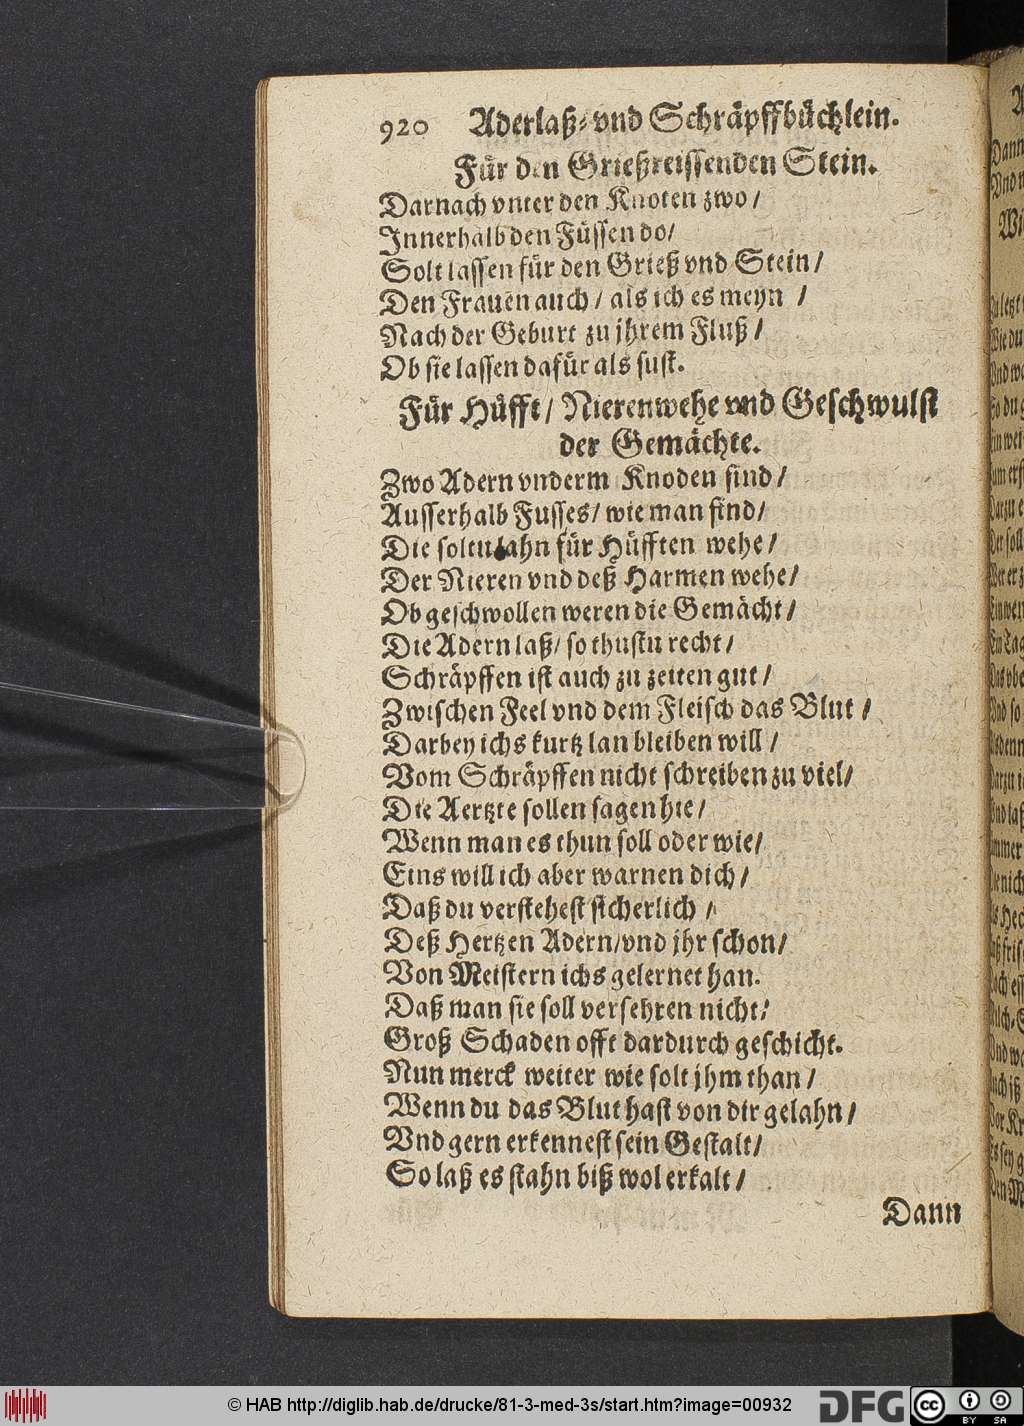 920 Aderlaß- vnd Schräpffbüchlein.
Für den Grießreissenden Stein.
Darnach vnter den Knoten zwo/
Innerhalb den Füssen do/
Solt lassen für den Grieß vnd Stein/
Den Frauen auch/ als ich es meyn /
Nach der Geburt zu jhrem Fluß/
Ob sie lassen dafür als sust.
Für Hüfft/ Nierenwehe vnd Geschwulst
der Gemächte.
Zwo Adern vnderm Knoden sind/
Ausserhalb Fusses/ wie man find/
Die soltu lahn für Hüfften wehe/
Der Nieren vnd deß Harmen wehe/
Ob geschwollen weren die Gemächt/
Die Adern laß/ so thustu recht/
Schräpffen ist auch zu zeiten gut/
Zwischen Feel vnd dem Fleisch das Blut /
Darbey ichs kurtz lan bleiben will /
Vom Schräpffen nicht schreiben zu viel/
Die Aertzte sollen sagen hie/
Wenn man es thun soll oder wie/
Eins will ich aber warnen dich/
Daß du verstehest sicherlich /
Deß Hertzen Adern/ vnd jhr schon/
Von Meistern ichs gelernet han.
Daß man sie soll versehren nicht/
Groß Schaden offt dardurch geschicht.
Nun merck weiter wie solt jhm than /
Wenn du das Blut hast von dir gelahn/
Vnd gern erkennest sein Gestalt/
So laß es stahn biß wol erkalt /
Dann
© HAB http://diglib.hab.de/drucke/81-3-med-3s/start.htm?image=00932
DFG
cc BY SA